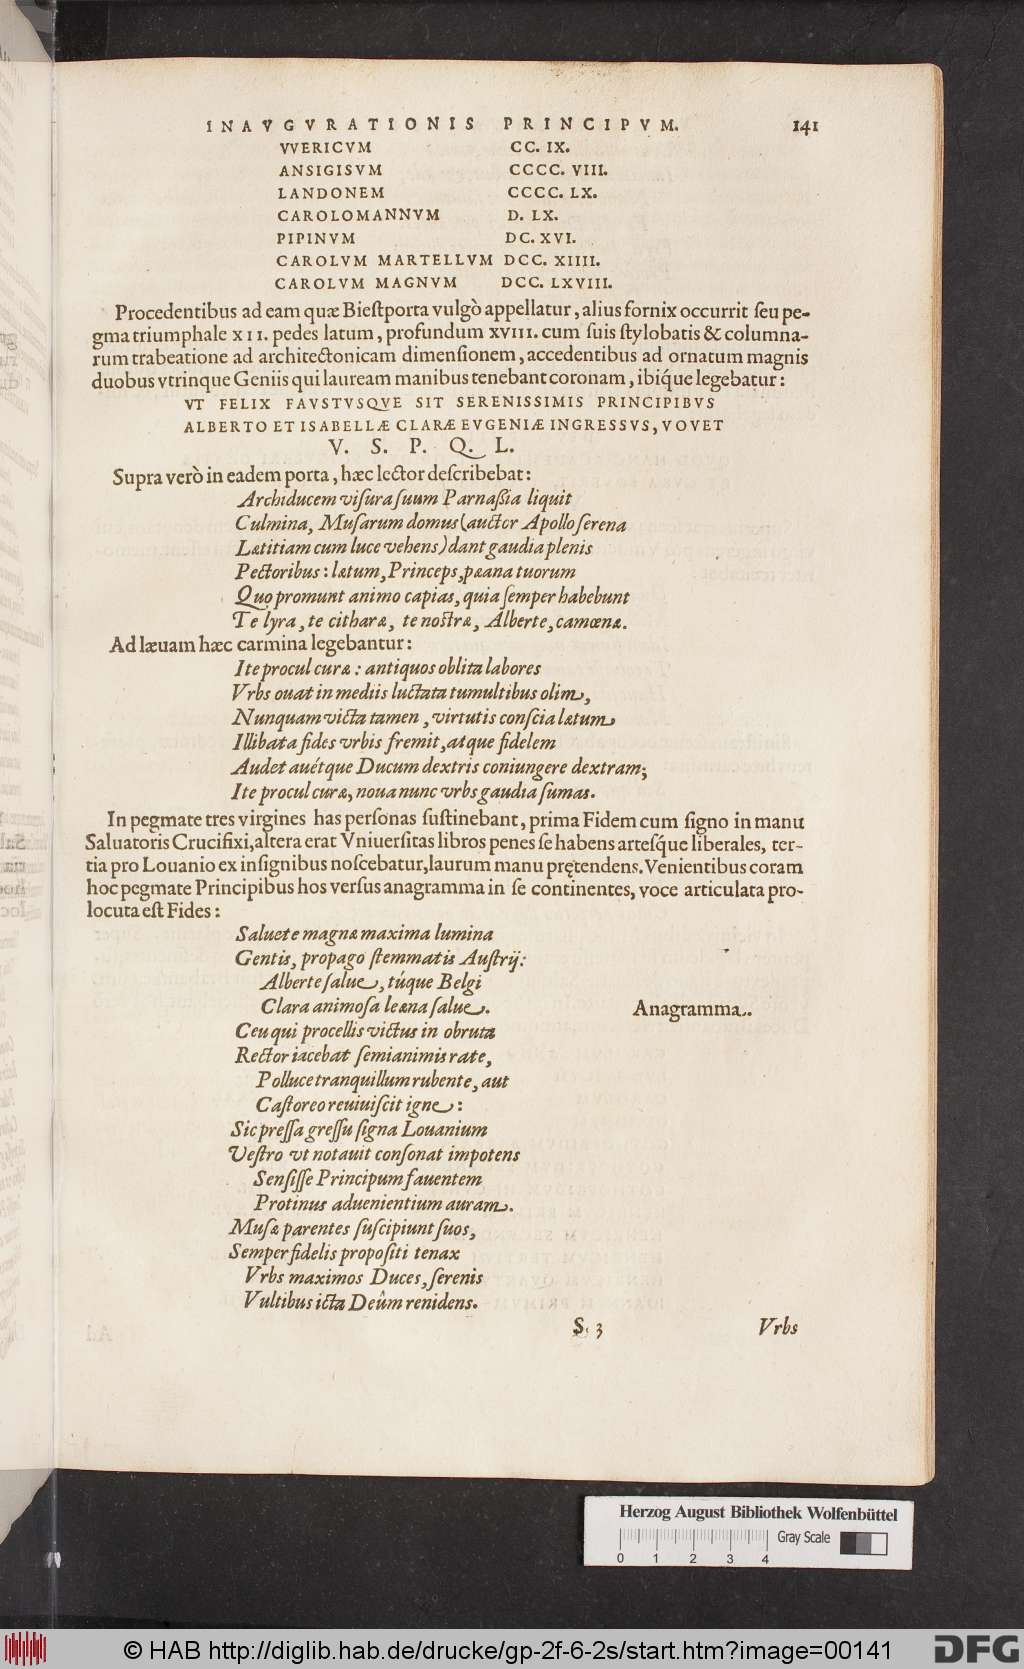 INAVGVRATIONIS PRINCIPVM. 141
VVERICVM CC. IX.
ANSIGISVM CCCC. VIII.
LANDONEM CCCC. LX.
CAROLOMANNVM D. LX.
PIPINVM DC. XVI.
CAROLVM MARTELLVM DCC. XIIII.
CAROLVM MAGNVM DCC. LXVIII.
Procedentibus ad eam quæ Bieſtporta vulgò appellatur, alius fornix occurrit ſeu pe-
gma triumphale XII. pedes latum, profundum XVIII. cum ſuis ſtylobatis & columna-
rum trabeatione ad architectonicam dimenſionem, accedentibus ad ornatum magnis
duobus vtrinque Geniis qui lauream manibus tenebant coronam, ibiq́ue legebatur:
VT FELIX FAVSTVSQVE SIT SERENISSIMIS PRINCIPIBVS
ALBERTO ET ISABELLÆ CLARÆ EVGENIÆ INGRESSVS, VOVET
V. S. P. Q. L.
Supra verò in eadem porta, hæc lector deſcribebat:
Archiducem viſura ſuum Parnaßia liquit
Culmina, Muſarum domus (auctor Apollo ſerena
Lætitiam cum luce vehens) dant gaudia plenis
Pectoribus: lætum, Princeps, pæana tuorum
Quo promunt animo capias, quia ſemper habebunt
Te lyra, te citharæ, te noſtræ, Alberte, camœnæ.
Ad læuam hæc carmina legebantur:
Ite procul curæ: antiquos oblita labores
Vrbs ouat in mediis luctata tumultibus olim,
Nunquam victa tamen, virtutis conſcia lætum
Illibata fides vrbis fremit, atque fidelem
Audet auétque Ducum dextris coniungere dextram;
Ite procul curæ, noua nunc vrbs gaudia ſumas.
In pegmate tres virgines has perſonas ſuſtinebant, prima Fidem cum ſigno in manu
Saluatoris Crucifixi, altera erat Vniuerſitas libros penes ſe habens arteſq́ue liberales, ter-
tia pro Louanio ex inſignibus noſcebatur, laurum manu prętendens. Venientibus coram
hoc pegmate Principibus hos verſus anagramma in ſe continentes, voce articulata pro-
locuta eſt Fides:
Saluete magnæ maxima lumina
Gentis, propago ſtemmatis Auſtrij:
Alberte ſalue, túque Belgi
Clara animoſa leæna ſalue. Anagramma.
Ceu qui procellis victus in obruta
Rector iacebat ſemianimis rate,
Polluce tranquillum rubente, aut
Caſtoreo reuiuiſcit igne:
Sic preſſa greſſu ſigna Louanium
Veſtro vt notauit conſonat impotens
Senſiſſe Principum fauentem
Protinus aduenientium auram.
Muſæ parentes ſuſcipiunt ſuos,
Semper fidelis propoſiti tenax
Vrbs maximos Duces, ſerenis
Vultibus icta Deûm renidens.
S 3 Vrbs
Herzog August Bibliothek Wolfenbüttel
Gray Scale
0 1 2 3 4
© HAB http://diglib.hab.de/drucke/gp-2f-6-2s/start.htm?image=00141 DFG